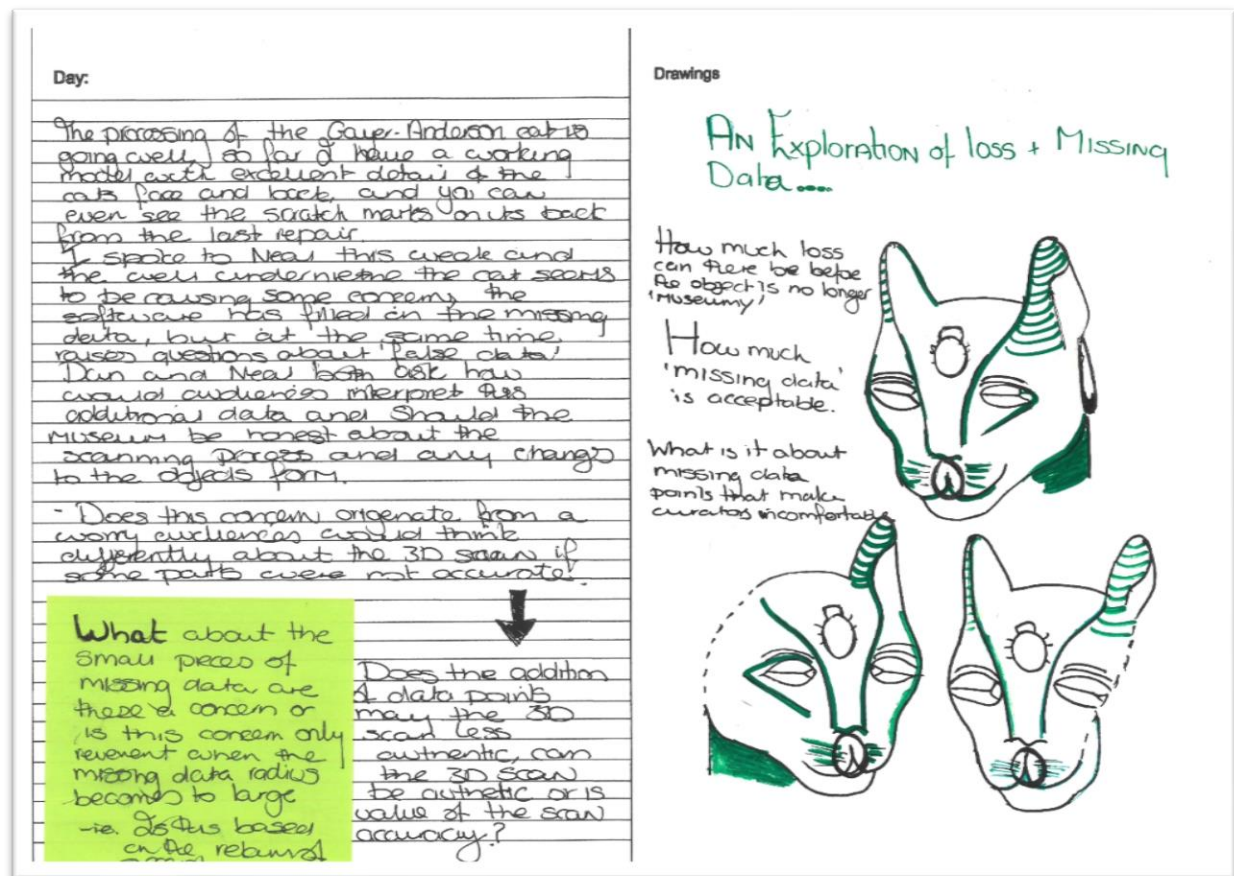 Day:
The processing of the Gayer-Anderson cat is
going well, so far I have a working
model with excellent detail of the
cats face and back, and you can
even see the scratch marks on its back
from the last repair.
I spoke to Neal this week and
the well underniethe the cat seems
to be causing some concern, the
software has filled in the missing
data, but at the same time
raises questions about 'false data'
Dan and Neal both ask how
would audiences interpret this
additional data and should the
museum be honest about the
scanning process and any changes
to the objects form.
- Does this concern origenate from a
worry audiences would think
differently about the 3D scan if
some parts were not accurate?
What about the
small pieces of
missing data are
these a concern or
is this concern only
revenent when the
missing data radius
becomes to large
-ie. Is this based
on the
Does the addition
of data points
may the 3D
scan less
authentic, can
the 3D scan
be authetic or is
value of the scan
accuracy?
Drawings
AN Exploration of loss + Missing
Data....
How much loss
can there be before
the object is no longer
'Museumy'
How much
'missing data'
is acceptable.
What is it about
missing data
points that make
curators incomfortable